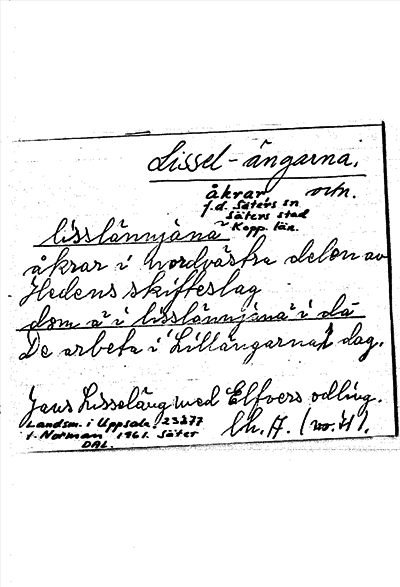 Lissel-ängarna.
åkrar
f.d. Säters sn
Säters stad
Kopp. län.
lisslännjäna
åkrar i nordvästra delen av
Hedens skifteslag
dom ä i lisslännjäna i dá
De arbeta i Lillängarna i dag.
Jans Lisseläng med Elfvers odling.
Landsm. i Uppsala 23277
t. Norman 1961. Säter
DAL.